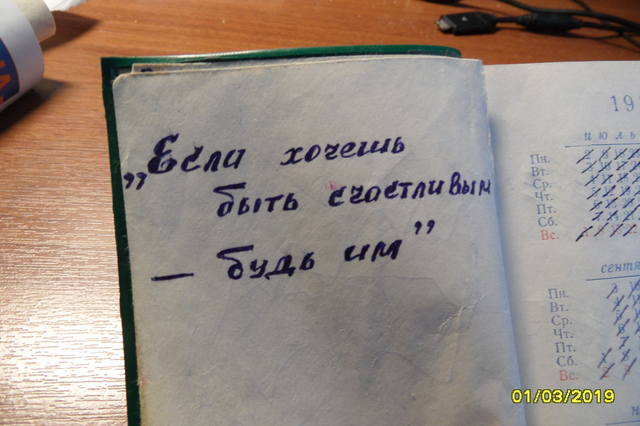 „Если хочешь
быть счастливым
— будь им”
19
июль
Пн.
Вт.
Ср.
Чт.
Пт.
Сб.
Вс.
сентя
Пн.
Вт.
Ср.
Чт.
Пт.
Сб.
Вс.
01/03/2019